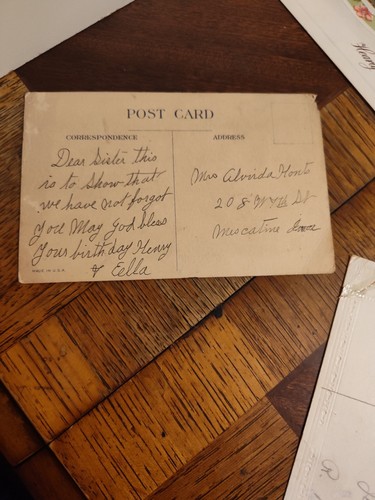 POST CARD
CORRESPONDENCE
ADDRESS
Dear Sister this
is to show that
we have not forgot
you May God bless
your birthday Henry
& Eella
Mrs Alvirda Hont
208 W St
Muscatine Iowa
MADE IN U.S.A.
Henry